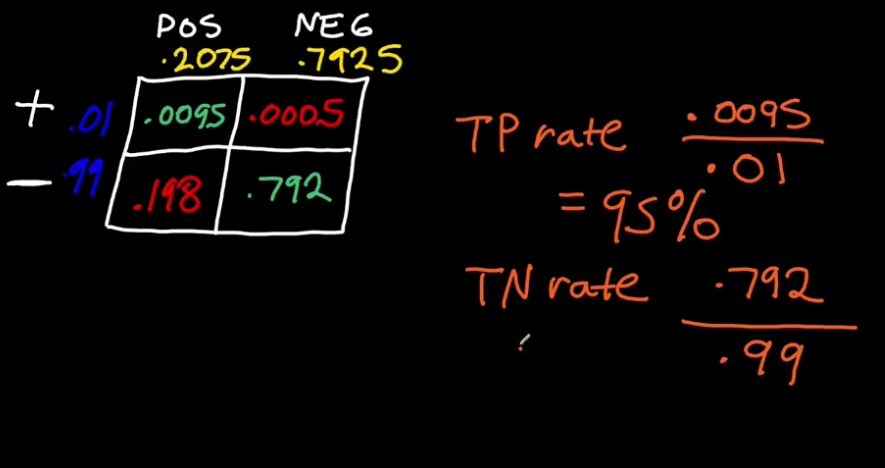 POS NEG
.2075 .7925
+ .01 .0095 .0005
− .99 .198 .792
TP rate .0095
.01
= 95%
TN rate .792
.99